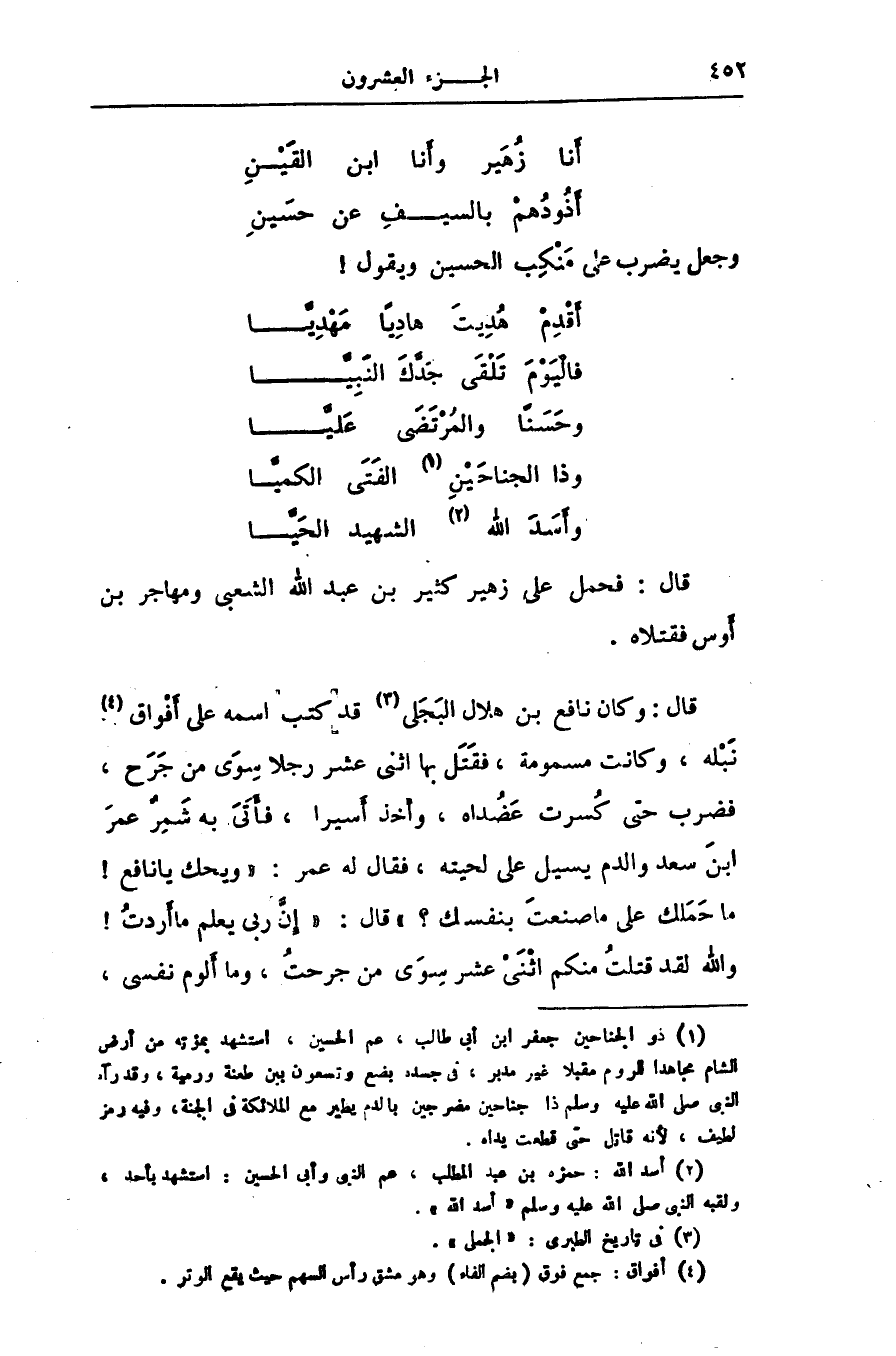 ٤٥٢
الجـــزء العشرون
أَنا زُهَير وأَنا ابن القَيْــنِ
أَذُودُهمْ بالسيـــفِ عن حسَينِ
وجعل يضرب على مَنْكِب الحسين ويقول !
أَقْدِمْ هُدِيتَ هادِيًا مَهْدِيَّـــا
فالْيَوْمَ تَلْقَى جَدَّكَ النَّبِيَّـــــا
وحَسَنًا والمُرْتَضَى عَليَّــــا
وذا الجناحَيْنِ (١) الفَتَى الكميَّـا
وأَسَدَ الله (٢) الشهيد الحَيَّـــا
قال : فحمل على زهير كثير بن عبد الله الشعبى ومهاجر بن
أَوس فقتلاه .
قال : وكان نافع بن هلال البَجَلى (٣) قد كتب اسمه على أَفْواق (٤)
نَبْله ، وكانت مسمومة ، فقَتَل بها اثنى عشر رجلا سِوَى من جَرَح ،
فضرب حتى كُسرت عَضُداه ، وأُخذ أَسيرا ، فأَتَى به شَمِرٌ عمرَ
ابنَ سعد والدم يسيل على لحيته ، فقال له عمر : « ويحك يانافع !
ما حَمَلك على ماصنعتَ بنفسك ؟ » قال : « إنَّ ربى يعلم ماأَردتُ !
والله لقد قتلتُ منكم اثْنَىْ عشر سِوَى من جرحتُ ، وما أَلوم نفسى ،
(١) ذو الجناحين جعفر ابن أبي طالب ، عم الحسين ، استشهد بمؤته من أرض
الشام مجاهدا للروم مقبلا غير مدبر ، فى جسده بضع وتسعون بين طعنة ورمية ، وقدرآه
النبى صلى الله عليه وسلم ذا جناحين مضرجين بالدم يطير مع الملائكة فى الجنة، وفيه رمز
لطيف ، لأنه قاتل حتى قطعت يداه .
(٢) أسد الله : حمزه بن عبد المطلب ، عم النبى وأبى الحسين : استشهد بأحد ،
ولقبه النبى صلى الله عليه وسلم « أسد الله » .
(٣) فى تاريخ الطبرى : « الجملى » .
(٤) أفواق : جمع فوق ( بضم الفاء ) وهو مشق رأس السهم حيث يقع الوتر .